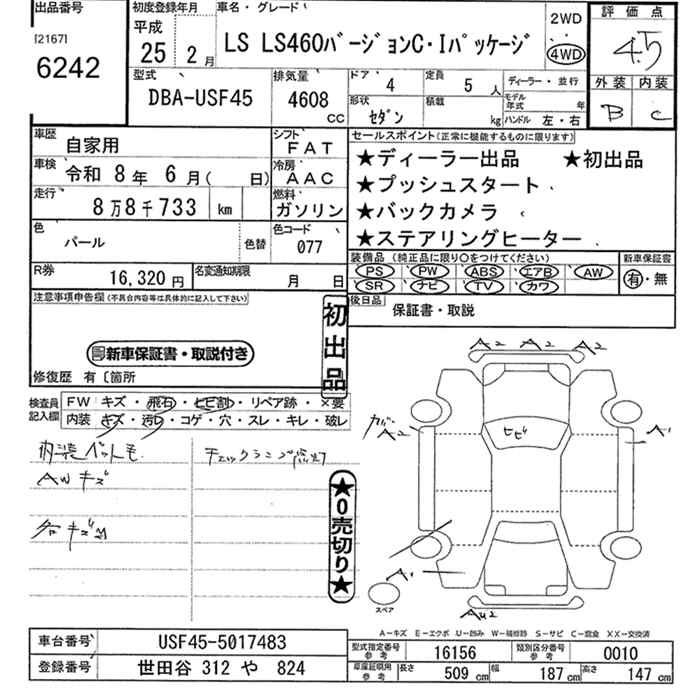 出品番号
[2167]
6242
初度登録年月
平成
25 2月
車名・グレード
LS LS460バージョンC・Iパッケージ
2WD
4WD
評価点
4.5
外装 内装
B C
型式
DBA-USF45
排気量
4608
CC
ドア 4
形状 セダン
定員 5 人
積載 kg
ディーラー・並行
モデル年式 年
ハンドル 左・右
車歴 自家用
シフト FAT
車検 令和 8年 6月( 日)
冷房 AAC
走行 8万8千733 km
燃料 ガソリン
色 パール
色替
色コード 077
R券 16,320円
名変通知期限 月 日
セールスポイント(正常に機能するものに限ります)
★ディーラー出品 ★初出品
★プッシュスタート
★バックカメラ
★ステアリングヒーター
装備品(純正品に限り○をつけてください)
PS PW ABS エアB AW
SR ナビ TV カワ
新車保証書
有・無
後日品
保証書・取説
注意事項申告欄(不具合内容等は具体的に記入して下さい)
新車保証書・取説付き
修復歴 有〔箇所
初出品
検査員記入欄
FW キズ・飛石・ヒビ割・リペア跡・×要
内装 キズ・汚れ・コゲ・穴・スレ・キレ・破レ
チェックランプ点灯
AWキズ
★0売切り★
A2 A2 A2
A2
ヒビ
A1
A1
スペア
A-キズ E-エクボ U-凹み W-補修跡 S-サビ C-腐食 XX-交換済
車台番号 USF45-5017483
登録番号 世田谷 312 や 824
型式指定番号 参考 16156
類別区分番号 参考 0010
車庫証明用 参考 長さ 509 cm 幅 187 cm 高さ 147 cm